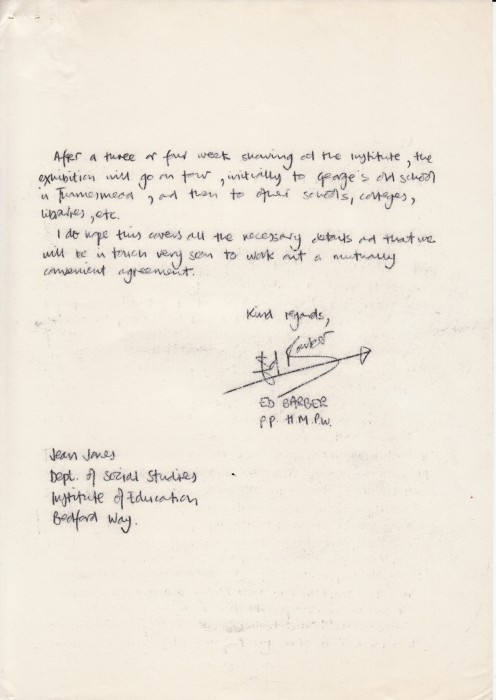 After a three or four week showing at the Institute, the
exhibition will go on tour, initially to George's old school
in Thamesmead, and then to other schools, colleges,
libraries, etc.
I do hope this covers all the necessary details and that we
will be in touch very soon to work out a mutually
convenient agreement.
Kind regards,
Ed Barber
ED BARBER
PP. H.M.P.W.
Jean Jones
Dept. of Social Studies
Institute of Education
Bedford Way.